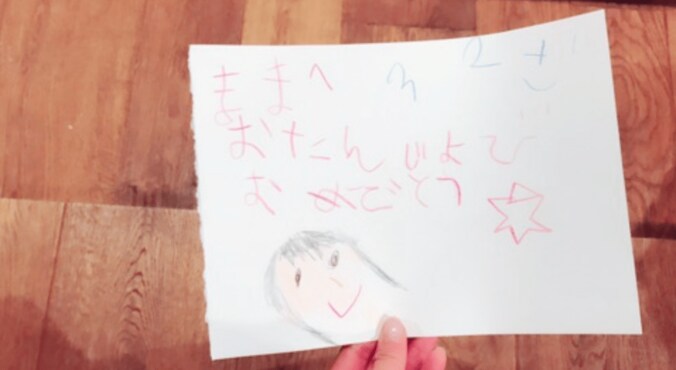 ままへ 32さい
おたんじよび
おめでとう